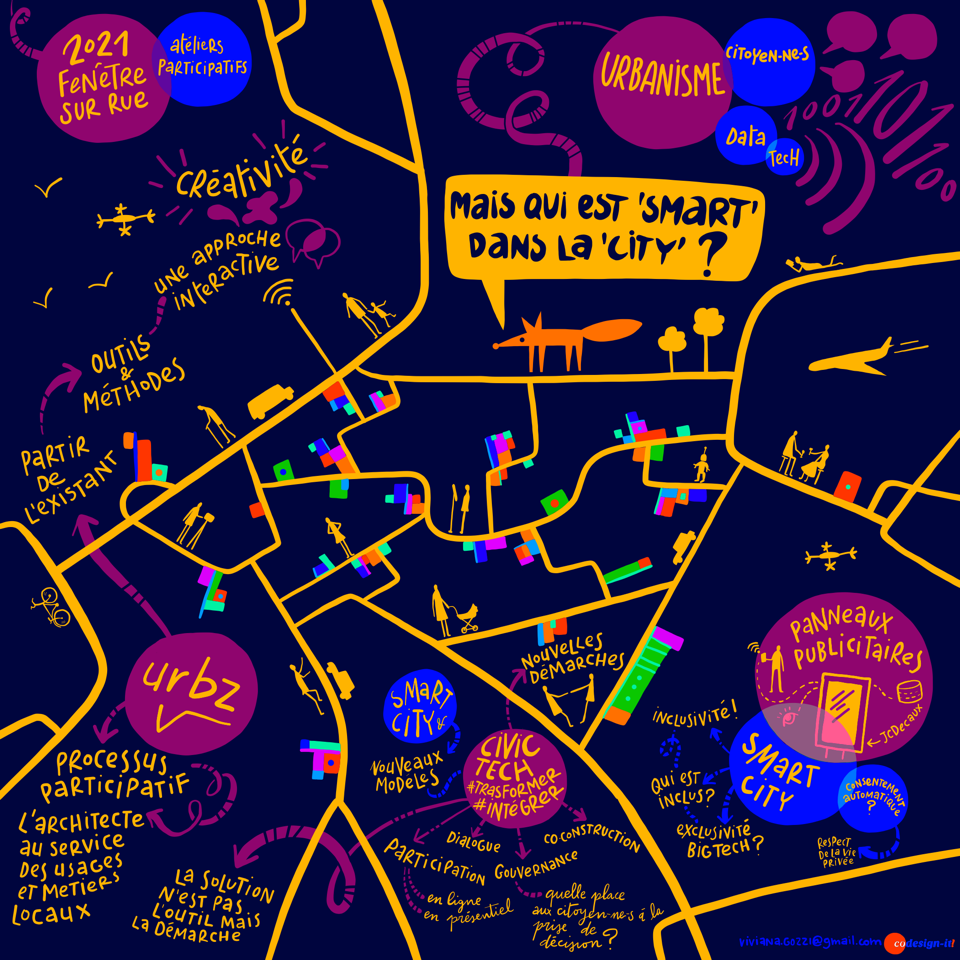 2021
FENÊTRE
SUR RUE
atéliers
Participatifs
URBANISME
CitOYEN-NE-S
Data
TecH
1001
101
100
MAIS QUI EST 'SMART'
DANS LA 'CITY' ?
CRéativité
UNE APPROCHE
INTERACTIVE
OUTILS
&
MÉTHODES
PARTIR
DE
L'EXISTANT
urbz
PROCESSUS
PARTICIPATIF
L'ARCHITECTE
AU SERVICE
DES USAGES
ET METIERS
LOCAUX
LA SOLUTION
N'EST PAS
L'OUTIL MAIS
LA DÉMARCHE
SMART
CITY &
NOUVEAUX
MODELES
NOUVELLES
DÉMARCHES
CIVIC
TECH
#TRASFORMER
#INTÉGRER
PARTICIPATION
DIALOGUE
GOUVERNANCE
COCONSTRUCTION
en ligne
en présentiel
quelle place
aux citoyen-ne-s á la
prise de
décision?
PANNEAUX
PUBLICITAIRES
JCDecaux
SMART
CITY
INCLUSIVITÉ!
QUI EST
INCLUS?
EXCLUSIVITÉ
BIGTECH?
CONSENTEMENT
AUTOMATIQUE
?
RESPECT
DE LA VIE
PRIVÉE
viviana.gozzi@gmail.com
codesign-it!